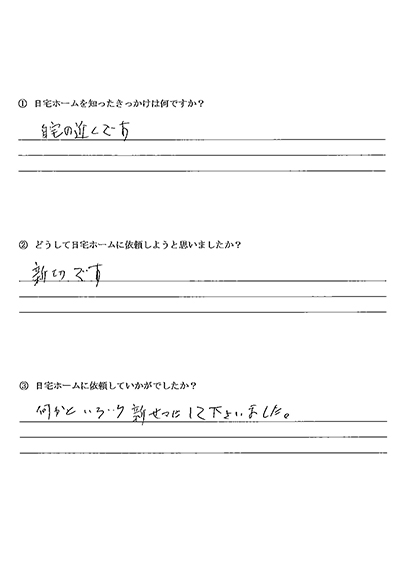 ① 日宅ホームを知ったきっかけは何ですか？
自宅の近くです
② どうして日宅ホームに依頼しようと思いましたか？
新切.です
③ 日宅ホームに依頼していかがでしたか？
何かといろいろ新せつにして下さいました。